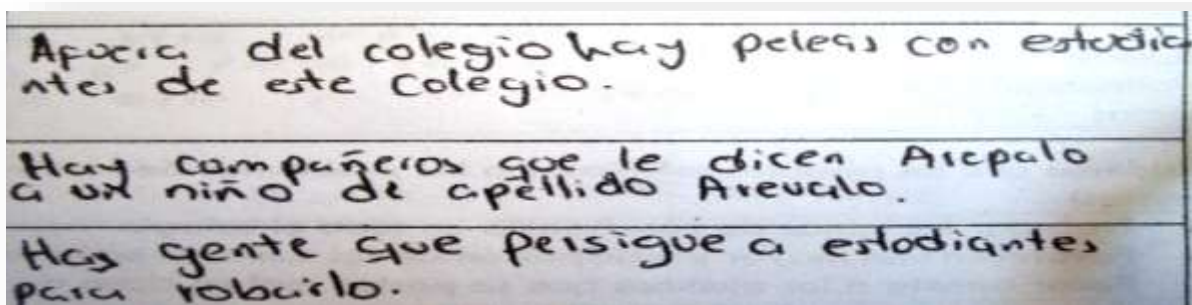 Afuera del colegio hay peleas con estudia
ntes de este colegio.
Hay compañeros que le dicen Arepalo
a un niño de apellido Arevalo.
Hay gente que persigue a estodiantes
para robarlo.